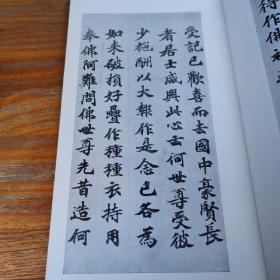 受記已歡喜而去國中豪賢長
者居士咸興此心云何世尊受彼
少施酬以大報作是念已各為
如来破損好疊作種種衣持用
奉佛阿難問佛世尊先昔造何